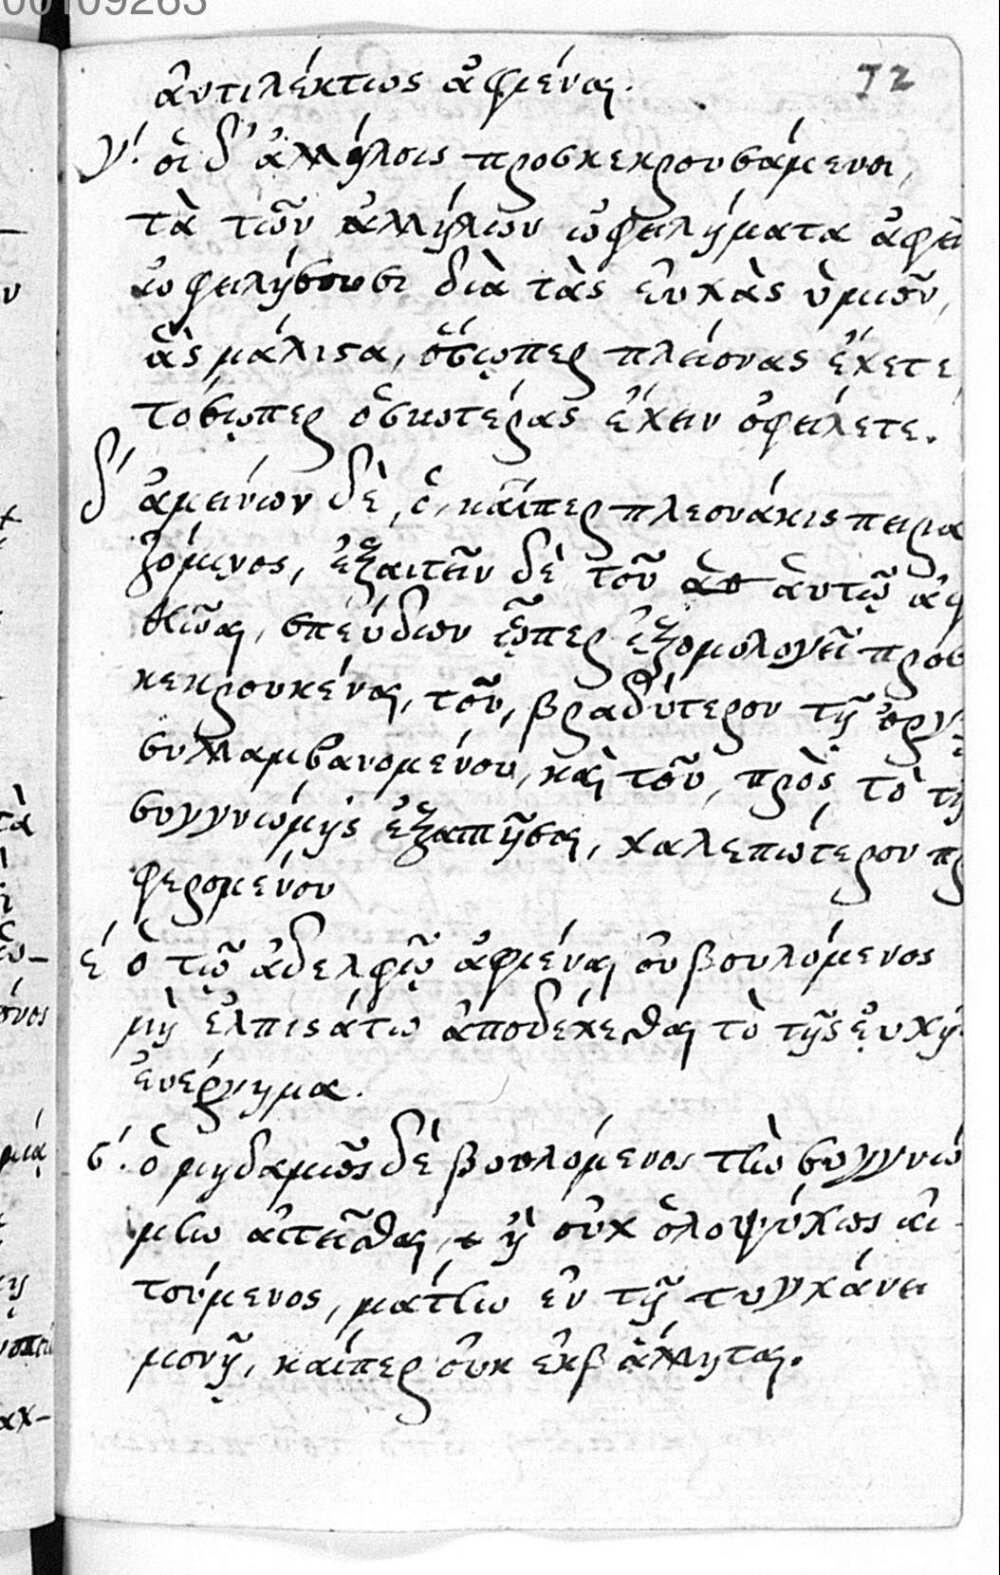 00109263
72
ἀντιλέκτως ἀφιέναι.
γ'. οἱ δ' ἀλλήλοις προσκεκρουσάμενοι,
τὰ τῶν ἀλλήλων ὠφειλήματα ἀφιέ
ὠφειλήσουσι διὰ τὰς εὐχὰς ὑμῶν,
ἃς μάλιστα, ὅσῳπερ πλείονας ἔχετε,
τόσῳπερ ὁσιωτέρας ἔχειν ὀφείλετε.
δ' ἀμείνων δὲ, ὁ, καίπερ πλεονάκις πειρα
ζόμενος, ἐξαιτεῖν δὲ τοῦ αὐτῷ ἀφ
θεῖναι, σπεύδων ᾧπερ ἐξομολογεῖ προσ
κεκρουκέναι, τοῦ, βραδύτερον τῇ ὀργῇ
συλλαμβανομένου, καὶ τοῦ, πρὸς τὸ τῆ
συγγνώμης ἐξαιτῆσαι, χαλεπώτερον πρ
φερομένου
ε' ὁ τῷ ἀδελφῷ ἀφιέναι οὐ βουλόμενος
μὴ ἐλπισάτω ἀποδέχεσθαι τὸ τῆς εὐχῆς
ἐνέργημα.
ς'. ὁ μηδαμῶς δὲ βουλόμενος τὴν συγγνώ
μην αἰτεῖσθαι, ἢ οὐχ ὁλοψύχως αἰ
τούμενος, μάτην ἐν τῇ τυγχάνει
μονῇ, καίπερ οὐκ ἐκβάλληται.